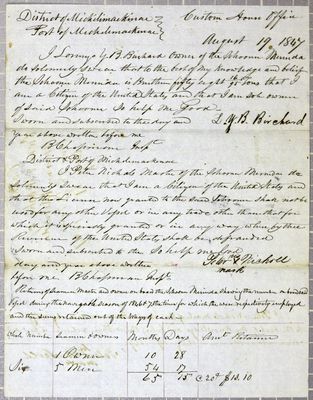 District of Michilimackinac
Port of Michilimackinac
Custom House Office
August 19 1847
I Lorenzo B. Birchard Owner of the Schooner Merinda
do solemnly Swear that to the best of my knowledge and belief
the Schooner Merinda is Burthen fifty Tons that I
am a Citizen of the United States, and that I am sole owner
of Said Schooner So help me God
Sworn and subscribed to the day and
year above written before me
L B. Birchard
B Chapman Inspr
District & Port of Michilimackinac
I Peter Nichols Master of the Schooner Merinda do
Solemnly Swear that I am a Citizen of the United States and
that this License now granted to the Said Schooner Shall not be
used for any other Vessel or in any trade other than that for
which it is specially granted or in any way whereby the
Revenue of the United States shall be defrauded
Sworn and subscribed to the So help me God
day and year above written
before me B Chapman Inspr
Nichols
mark
Return of Seamen Masters and owners on board the Schooner Merinda Shewing the number on board
before during the months for which they were respectively employed
and the sums retained out of the wages of each
Whole Number Seamen & owners Months Days Amt Retained
1 Owner 10 28
Six 5 Men 54 17
65 15 @ 20¢ $13.10